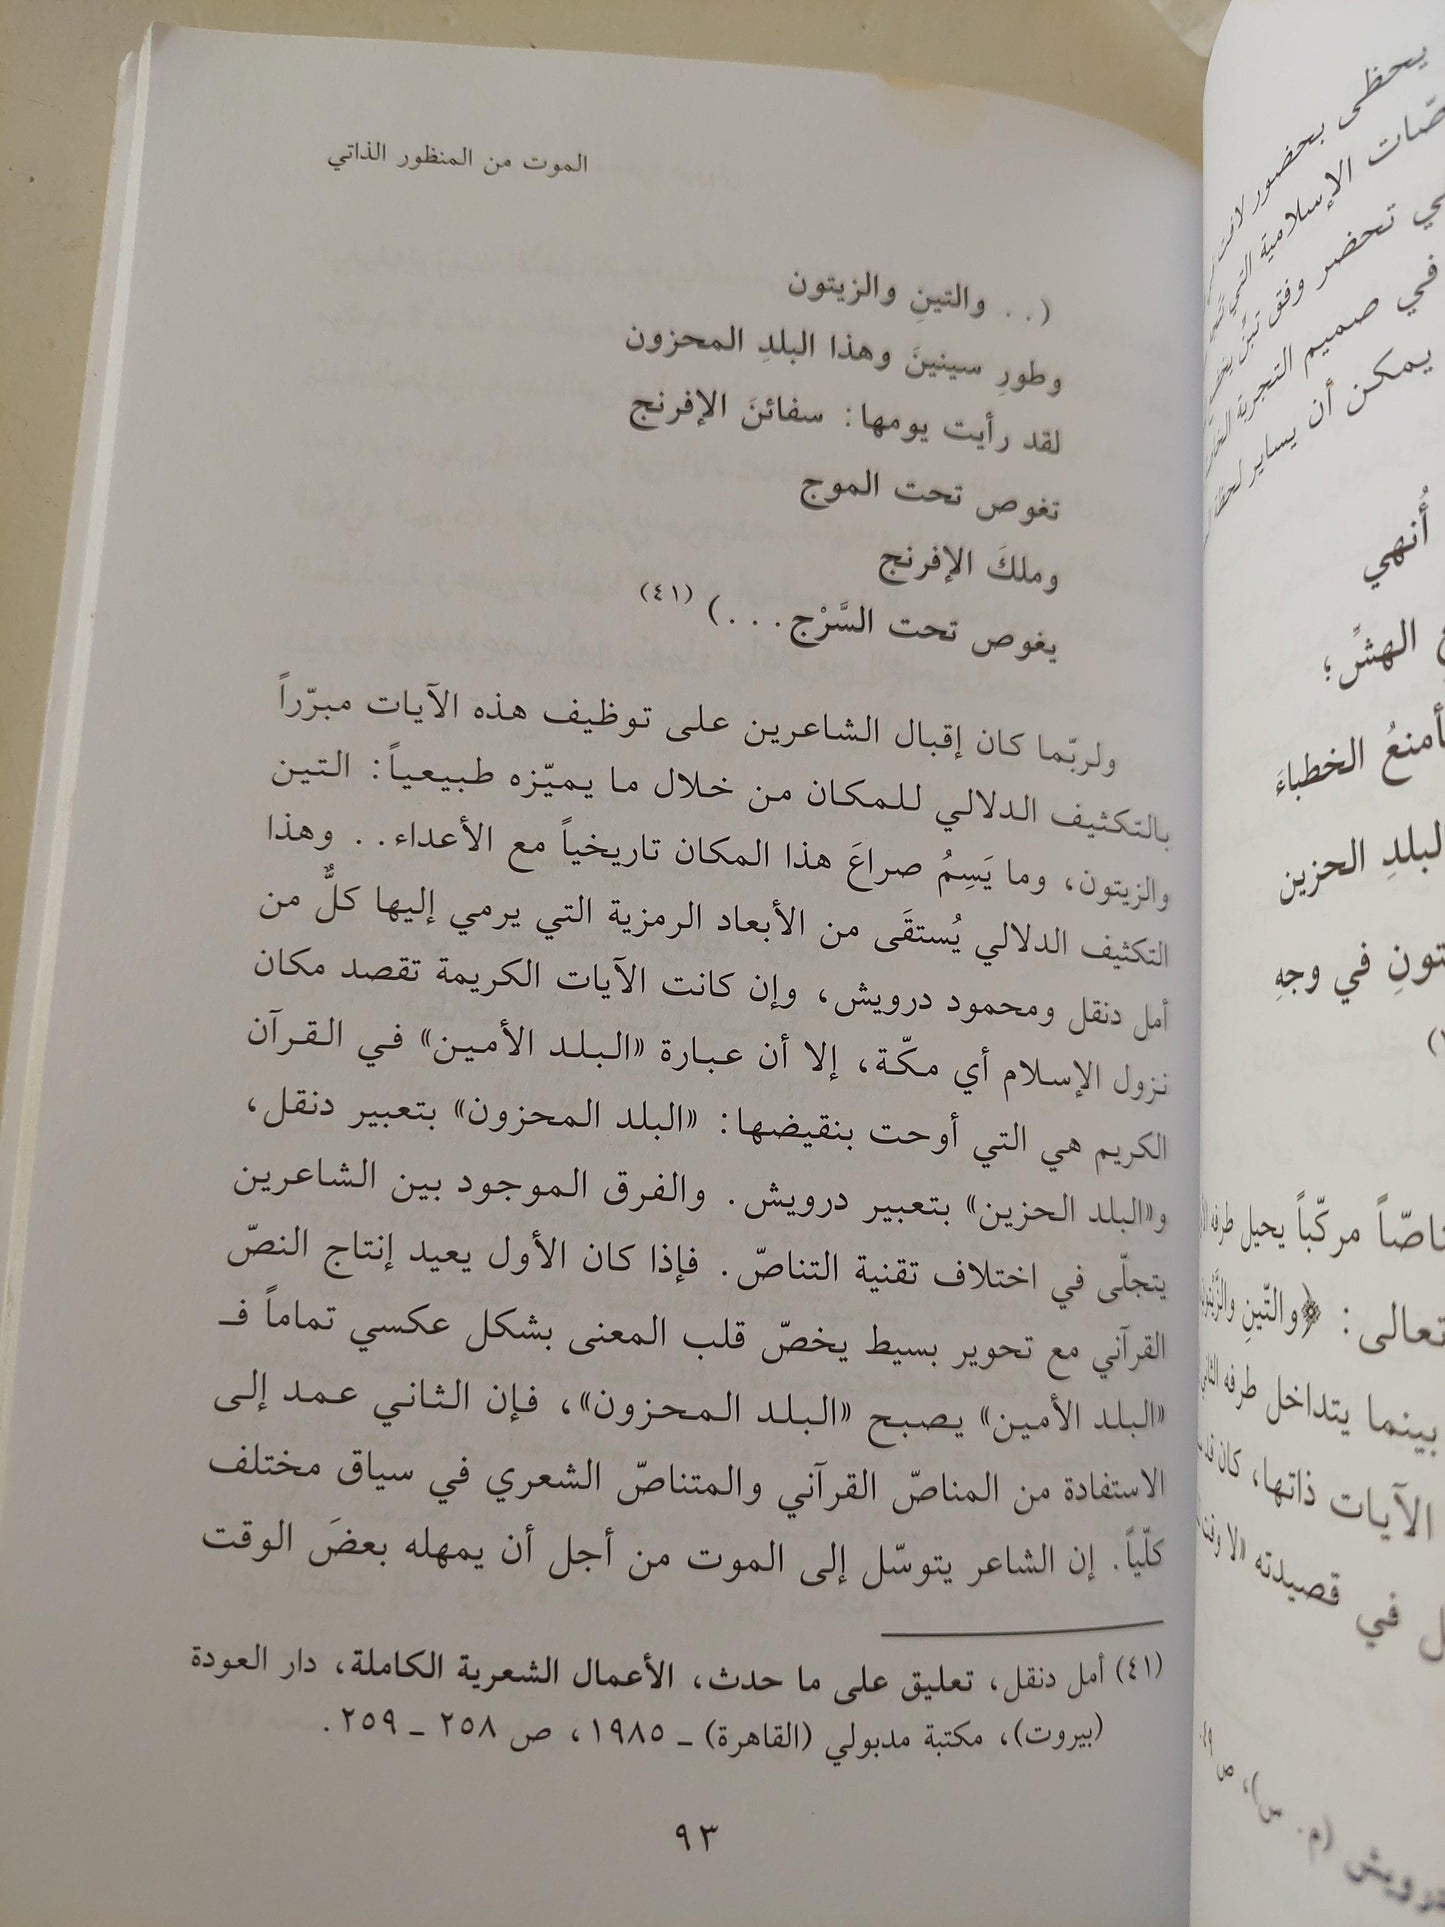 الموت من المنظور الذاتي
(. . والتينِ والزيتون
وطورِ سينينَ وهذا البلدِ المحزون
لقد رأيت يومها: سفائنَ الإفرنج
تغوص تحت الموج
وملكَ الإفرنج
يغوص تحت السَّرْج. . .) (٤١)
ولربّما كان إقبال الشاعرين على توظيف هذه الآيات مبرّراً
بالتكثيف الدلالي للمكان من خلال ما يميّزه طبيعياً: التين
والزيتون، وما يَسِمُ صراعَ هذا المكان تاريخياً مع الأعداء. . وهذا
التكثيف الدلالي يُستقَى من الأبعاد الرمزية التي يرمي إليها كلٌّ من
أمل دنقل ومحمود درويش، وإن كانت الآيات الكريمة تقصد مكان
نزول الإسلام أي مكّة، إلا أن عبارة «البلد الأمين» في القرآن
الكريم هي التي أوحت بنقيضها: «البلد المحزون» بتعبير دنقل،
و«البلد الحزين» بتعبير درويش. والفرق الموجود بين الشاعرين
يتجلّى في اختلاف تقنية التناصّ. فإذا كان الأول يعيد إنتاج النصّ
القرآني مع تحوير بسيط يخصّ قلب المعنى بشكل عكسي تماماً فـ
«البلد الأمين» يصبح «البلد المحزون»، فإن الثاني عمد إلى
الاستفادة من المناصّ القرآني والمتناصّ الشعري في سياق مختلف
كلّياً. إن الشاعر يتوسّل إلى الموت من أجل أن يمهله بعضَ الوقت
(٤١) أمل دنقل، تعليق على ما حدث، الأعمال الشعرية الكاملة، دار العودة
(بيروت)، مكتبة مدبولي (القاهرة) ـ ١٩٨٥، ص ٢٥٨ ـ ٢٥٩.
٩٣
يحظى بحضور
الإسلامية التي
تحضر وفق
في صميم التجربة
يمكن أن يساير لحظة
أُنهي
الهشِّ؛
الخطباءَ
البلدِ الحزين
في وجهِ
مركّباً يحيل طرفه
تعالى: ﴿والتّينِ والزَّيتونِ
بينما يتداخل طرفه الثاني
الآيات ذاتها، كان قد
في قصيدته «لا وقت
درويش (م. س)، ص